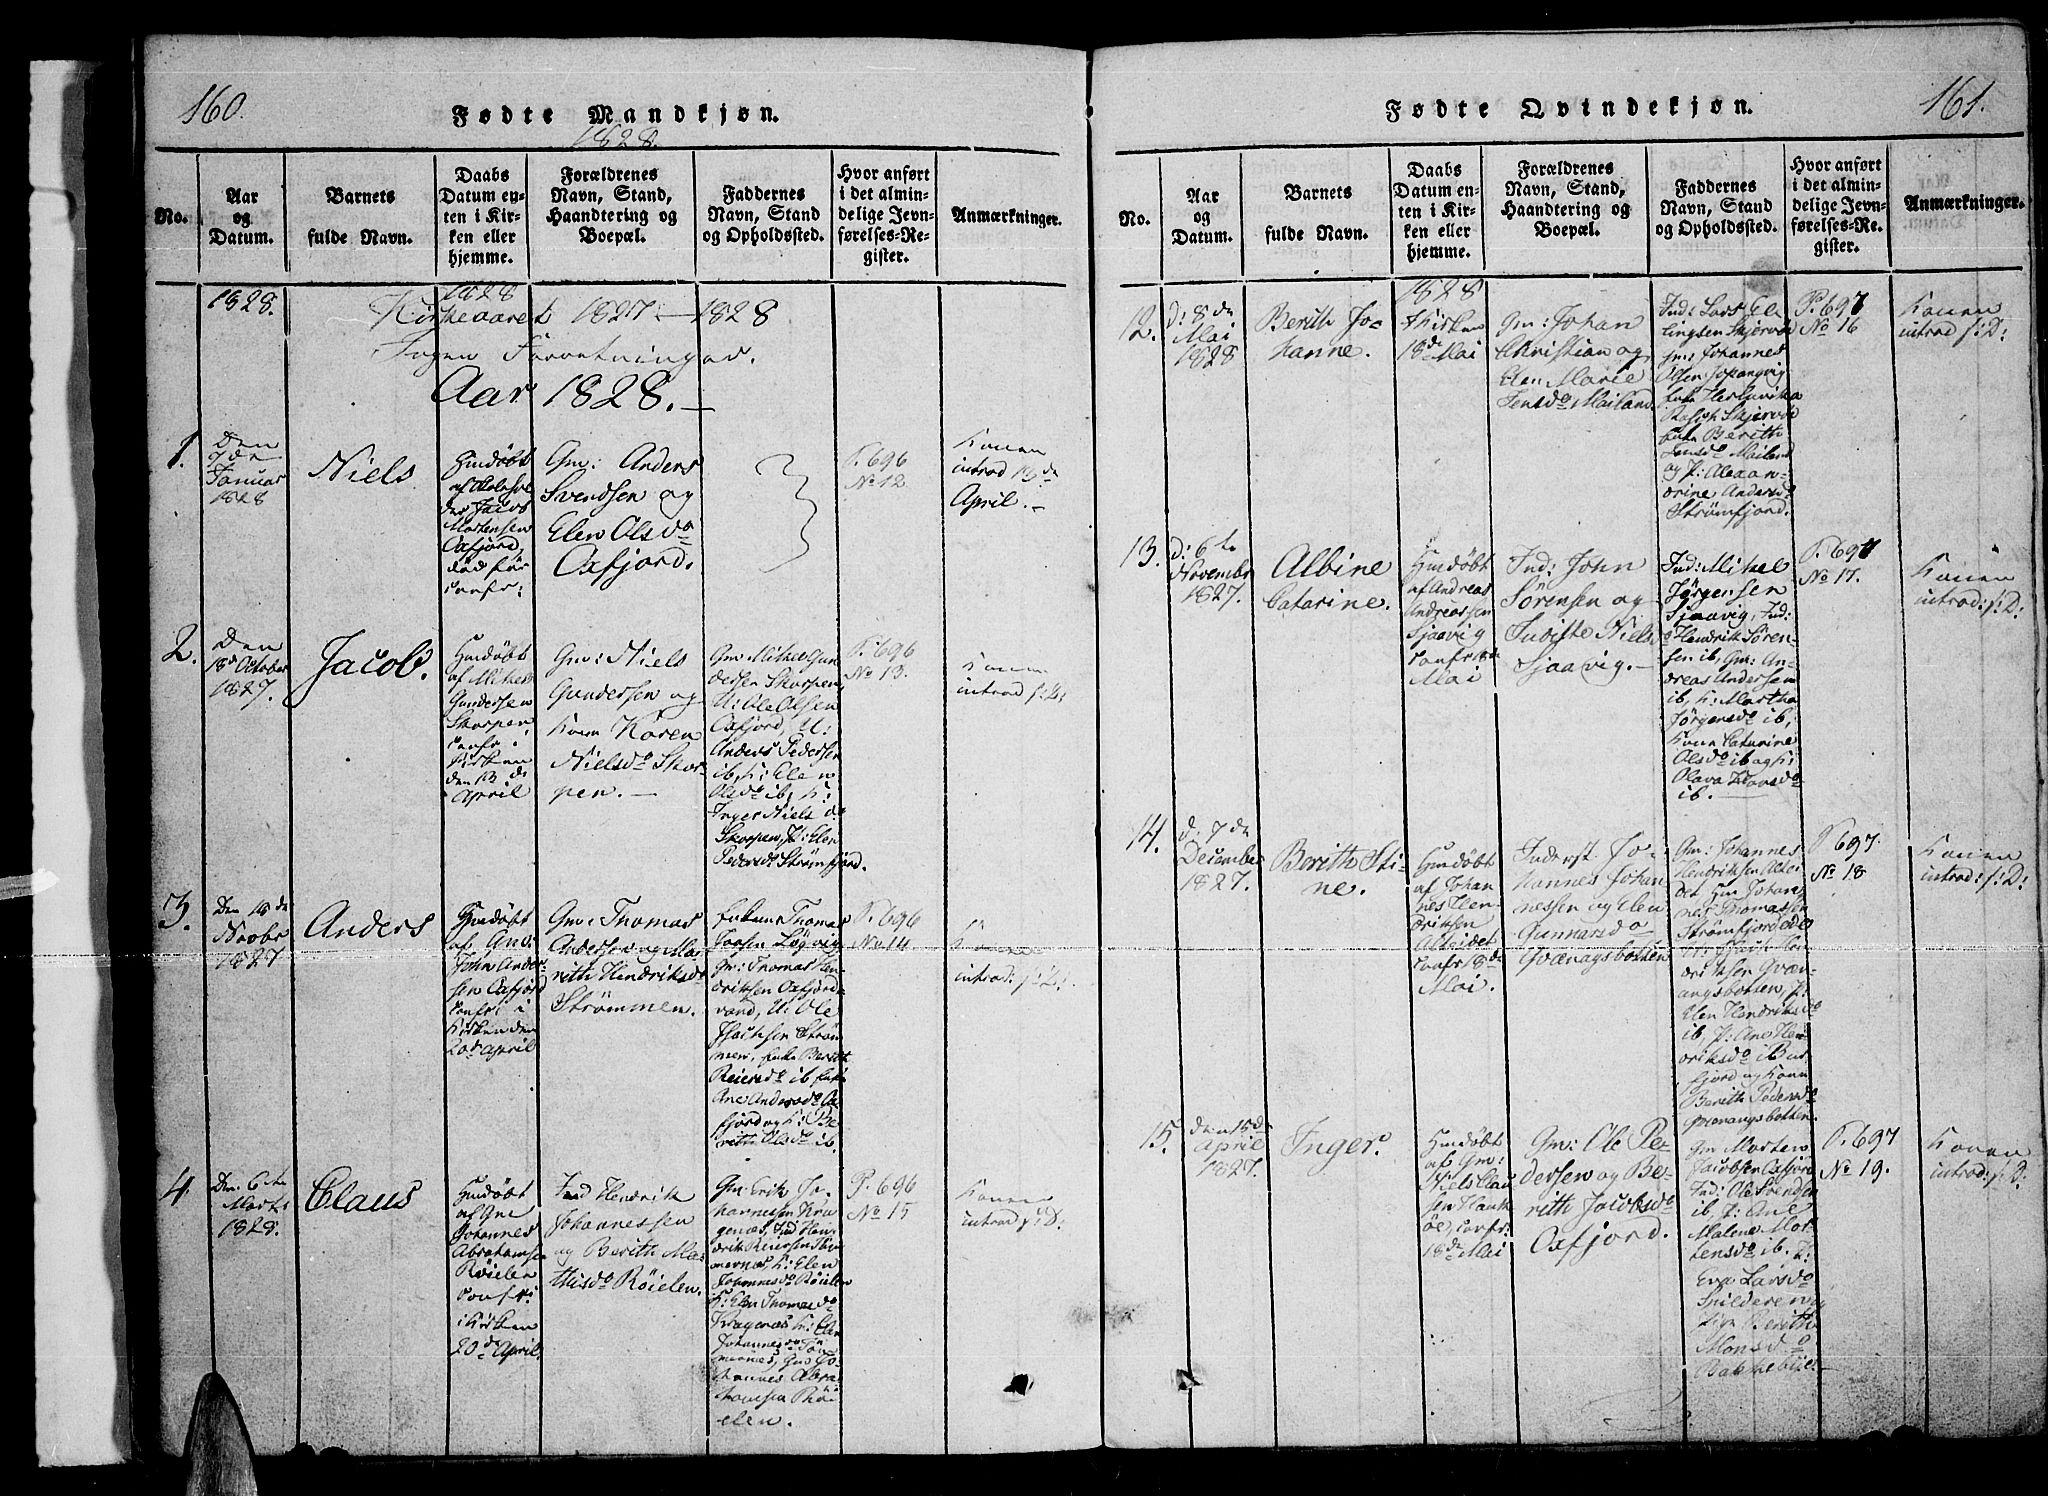 160.
Fødte Mandkjøn.
1828.
No.
Aar
og
Datum.
Barnets
fulde Navn.
Daabs
Datum en-
ten i Kir-
ken eller
hjemme.
Forældrenes
Navn, Stand,
Haandtering og
Boepæl.
Faddernes
Navn, Stand
og Opholdssted.
Hvor anført
i det almin-
delige Jevn-
førelses-Re-
gister.
Anmærkninger.
1828.
1828
Kirkeaaret 1827 - 1828
Ingen Forretninger.
Aar 1828. -
1.
Den
7de
Januar
1828
Niels
Hiemdøbt
Jacob
Mortensen
Oxfjord,
død før
confr:
Gm: Anders
Svendsen og
Elen Olsdr
Oxfjord.
P. 696
No 12
Konen
introd 13de
April. -
2.
Den
18de October
1827.
Jacob.
Hiemdøbt
af Mikel
Gundersen
Skorpen
confr i
Kirken
den 13de
April
Gm: Niels
Gundersen og
Kone Karen
Nielsdr Skor-
pen. -
Gm: Mikel Gun
dersen Skorpen,
U: Ole Olsen
Oxfjord, U:
Anders Pedersen
ib, K: Elen
Olsdr ib, K:
Inger Niels dr
Skorpen, P: Elen
Pedersdr Strømfjord.
P: 696
No 13.
Konen
introd s: D:
3.
Den 18de
Novbr
1827
Anders
Hiemdøbt
af And:
John Ander
sen Oxfjord
confr: i
Kirken den
20de April
Gm: Thomas
Andersen og Ma
rith Hendriksdr
Strømmen.
Enkem Thomas
Gm: Thomas Hen
driksen Oxfjord
vand, U: Ole
Isachsen Strøm
men, Enke Berit
Reiersdr ib Enke
Ane Andersdr Ox
fjord og K: Be
rith Olsdr ib.
P. 696
No 14.
Konen
introd: s: D:
4.
Den 6te
Marts
1828.
Claus
Hiemdøbt
af Gm
Johannes
Abrahamsen
Røielen
confr:
i Kirken
20de April.
Ind Hendrik
Johannessen
og Berith Ma
thisdr Røielen.
Gm: Erik Jo
hannesen Kra
genæs, Ind Hen
drik Reiersen
K: Elen
Johannesdr Røielen
K: Elen Thomasdr
Kragenæs K: Elen
Johannesdr
Gm Jo
hannes Abra
hamsen Røi
elen.
P. 696
No 15
Konen
introd s: D:
161.
Fødte Qvindekjøn.
No.
Aar
og
Datum.
Barnets
fulde Navn.
Daabs
Datum en-
ten i Kir-
ken eller
hjemme.
Forældrenes
Navn, Stand,
Haandtering og
Boepæl.
Faddernes
Navn, Stand
og Opholdssted.
Hvor anført
i det almin-
delige Jevn-
førelses-Re-
gister.
Anmærkninger.
1828
12.
d: 8de
Mai
1828
Berith Jo-
hanne.
I Kirken
18de Mai
Gm: Johan
Christian og
Elen Marie
Jensdr Mailand
Ind: Lars El
lingsen Skjervøe
Gm: Johannes
Olsen
Skjervøe
Berith
Jensdr Mailand
og P: Alexan
drine Andersdr
Strømfjord.
P. 697
No 16
Konen
introd s: D:
13.
d: 6te
November
1827.
Albine
Catarine.
Hiemdøbt
af Andreas
Andreassen
Sjaavig
confr 18de
Mai
Ind: John
Sørensen og
Judithe Nielsdr
Sjaavig. -
Ind: Mikel
Jørgensen
Sjaavig, Ind:
Hendrik Søren-
sen ib, Gm: An-
dreas Andersen
ib, K: Martha
Jørgensdr ib,
Kone Catarine
Olsdr ib og P:
Olava
ib. -
P. 697
No 17.
Konen
introd: s: D:
14.
d: 7de
December
1827.
Berith Sti-
ne.
Hiemdøbt
af Johan
nes Hen
driksen
Alteidet
confr 18de
Mai.
Inderst. Jo-
hannes Johan
nessen og Elen
Gunnarsdr
Qvænagsbotten
Gm: Johannes
Hendriksen Altei
det Gm Johan
nes Thomassen
Strømfjord
U: Hen
driksen Qvæn
angsbotten, P:
Elen Hendriksdr
ib, P: Ane Hen
driksdr ib Bur
fjord og Kone
Berith Pedersdr
Qvænangsbotten.
P. 697.
No 18
Konen
introd: s: D:
15.
den 15de
April
1827.
Inger.
Hiemdøbt
af Gm:
Niels Clau
sen Hauk
øe, confr:
18de Mai
Gm: Ole Pe-
dersen og Be-
rith Jacobsdr
Oxfjord.
Gm Morten
Jacobsen Oxfjord
Ind: Ole Svendsen
ib, P: Ane
Malene Mor
tensdr ib. P:
Eva Larsdr
Spilderen og
Pige Berith
Monsdr
Bakkebye. -
P. 697
No 19.
Konen
introd: s: D: